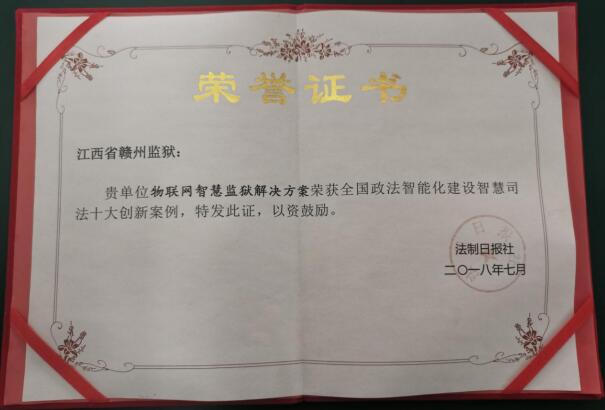 荣誉证书
江西省赣州监狱：
贵单位物联网智慧监狱解决方案荣获全国政法智能化建设智慧司
法十大创新案例，特发此证，以资鼓励。
法制日报社
二〇一八年七月